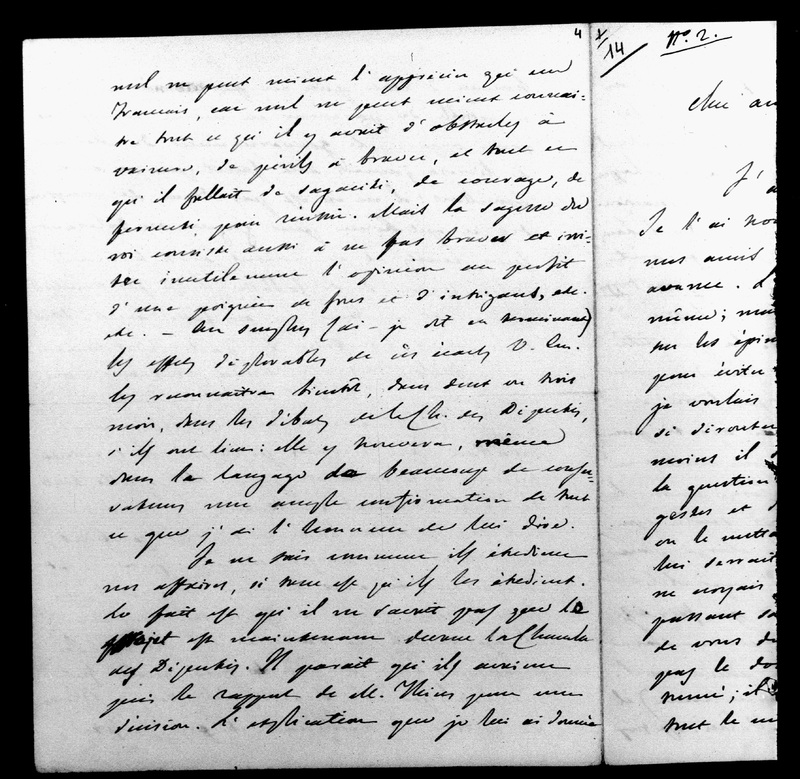 4
nul ne peut mieux l'apprécier qu'un
Français, car nul ne peut mieux connaî-
tre tout ce qu'il y avait d'obstacles à
vaincre, de périls à braver, et tout ce
qu'il fallait de sagacité, de courage, de
fermeté pour réussir. Mais la sagesse du
roi consiste aussi à ne pas braver et irri-
ter inutilement l'opinion au profit
d'une poignée de fous et d'intrigants, etc.
etc. – Au surplus (ai-je dit en terminant)
les effets déplorables de ces écarts V. Em.
les reconnaîtra bientôt, dans deux ou trois
mois, dans les débats de la Ch. des Députés,
s'ils ont lieu: elle y trouvera, même
dans le langage de beaucoup de conser-
vateurs une ample confirmation de tout
ce que j'ai l'honneur de lui dire.
Je ne sais comment ils étudient
nos affaires, si tant est qu'ils les étudient.
Le fait est qu'il ne savait pas que le
projet est maintenant devant la Chambre
des Députés. Il paraît qu'ils avaient
pris le rapport de M. Thiers pour une
décision. L'explication que je lui ai donnée
X/14
N.º 2.
Cher am
J'a
Je l'ai
mes amis
avance. L
même; mai
sur les épin
pour éviter
je voulais
si dérouter
moins il
la question
gestes et
on le metta
lui serrait
ne croyais
passant
de vous
pas le do
; il
tout le m